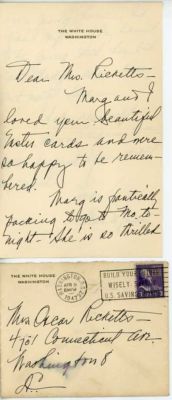 THE WHITE HOUSE
WASHINGTON
Dear Mrs. Ricketts –
Marg and I
loved your beautiful
Easter cards and were
so happy to be remem-
bered.
Marg is frantically
packing to go to Mo. to-
night – She is so thrilled
THE WHITE HOUSE
WASHINGTON
WASHINGTON
APR
1947
BUILD YOUR
WISELY
U.S. SAVINGS
Mrs. Oscar Ricketts –
4701 Connecticut Ave.
Washington 8
D.C.